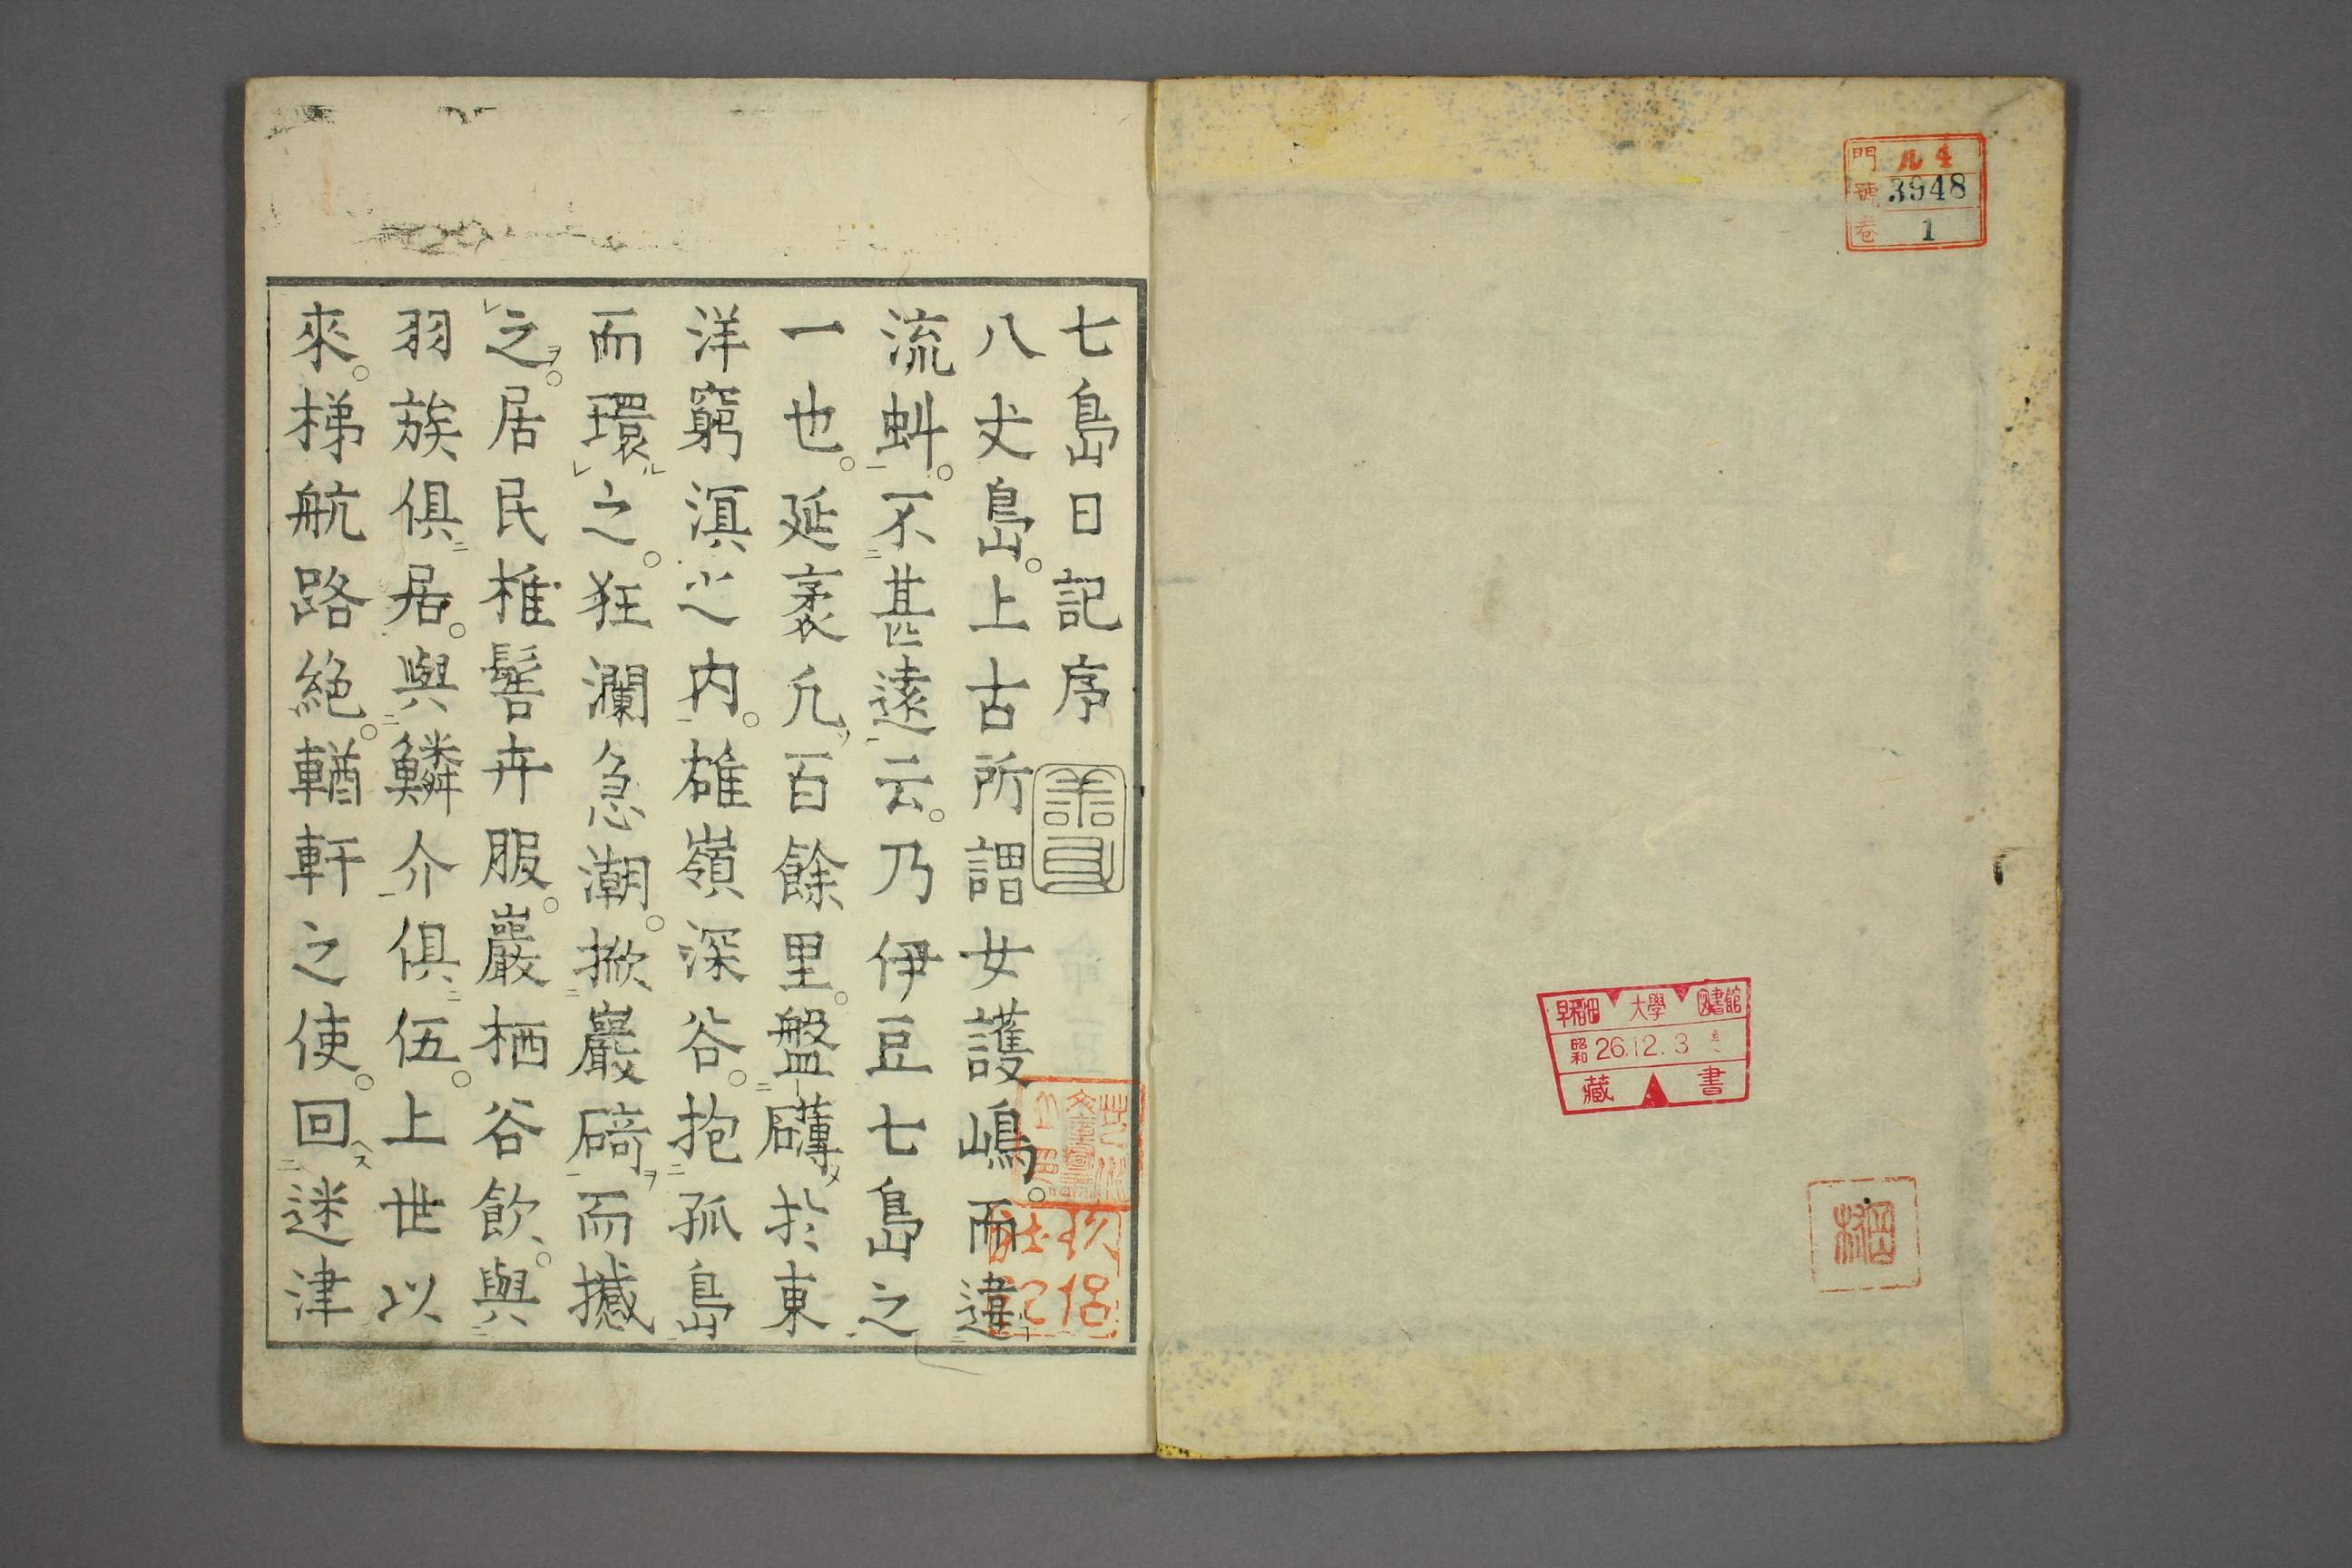 門 ル4
號 3948
卷 1
早稻田大學圖書館
昭和 26.12.3
藏書
七島日記序
八丈島。上古所謂女護嶋。而違
流蚪。不甚遠云。乃伊豆七島之
一也。延袤凡百餘里。盤礴於東
洋窮溟之内。雄嶺深谷。抱孤島
而環之。狂瀾急潮。掀巖碕而撼
之。居民椎髻卉服。巖栖谷飲。與
羽族俱居。與鱗介俱伍。上世以
來。梯航路絶。輶軒之使。回迷津